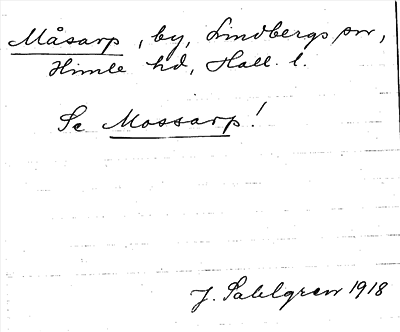 Måsarp, by, Lindbergs sn,
Himle hd, Hall. l.
Se Mossarp!
J. Sahlgren 1918